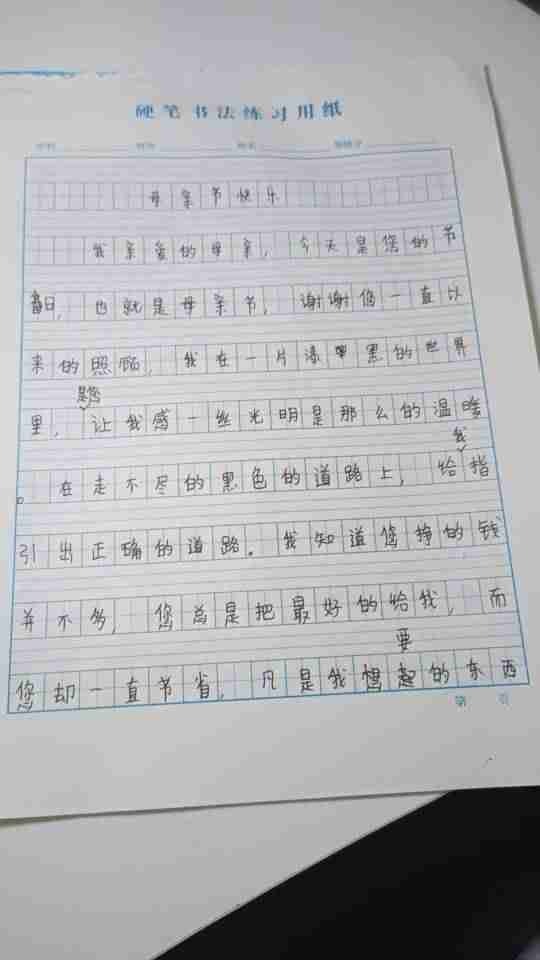 硬笔书法练习用纸
母亲节快乐
我亲爱的母亲，今天是您的节
日，也就是母亲节，谢谢您一直以
来的照顾，我在一片漆黑的世界
是您
里，让我感一丝光明是那么的温暖
我
。在走不尽的黑色的道路上，给指
引出正确的道路。我知道您挣的钱
并不多，您总是把最好的给我，而
要
您却一直节省，凡是我想起的东西
第 页